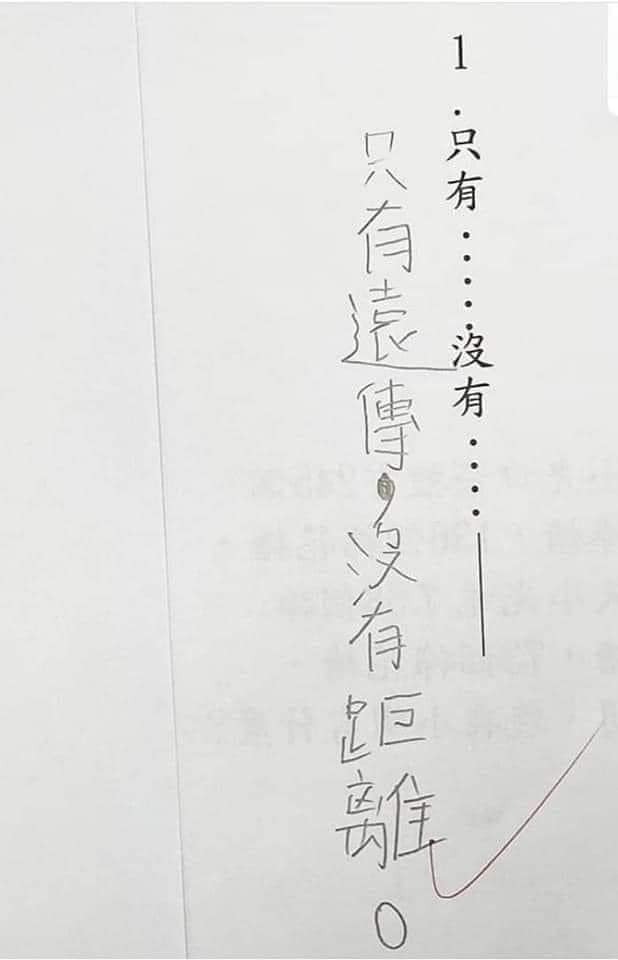 1.只有……沒有……
只有遠傳，沒有距離。